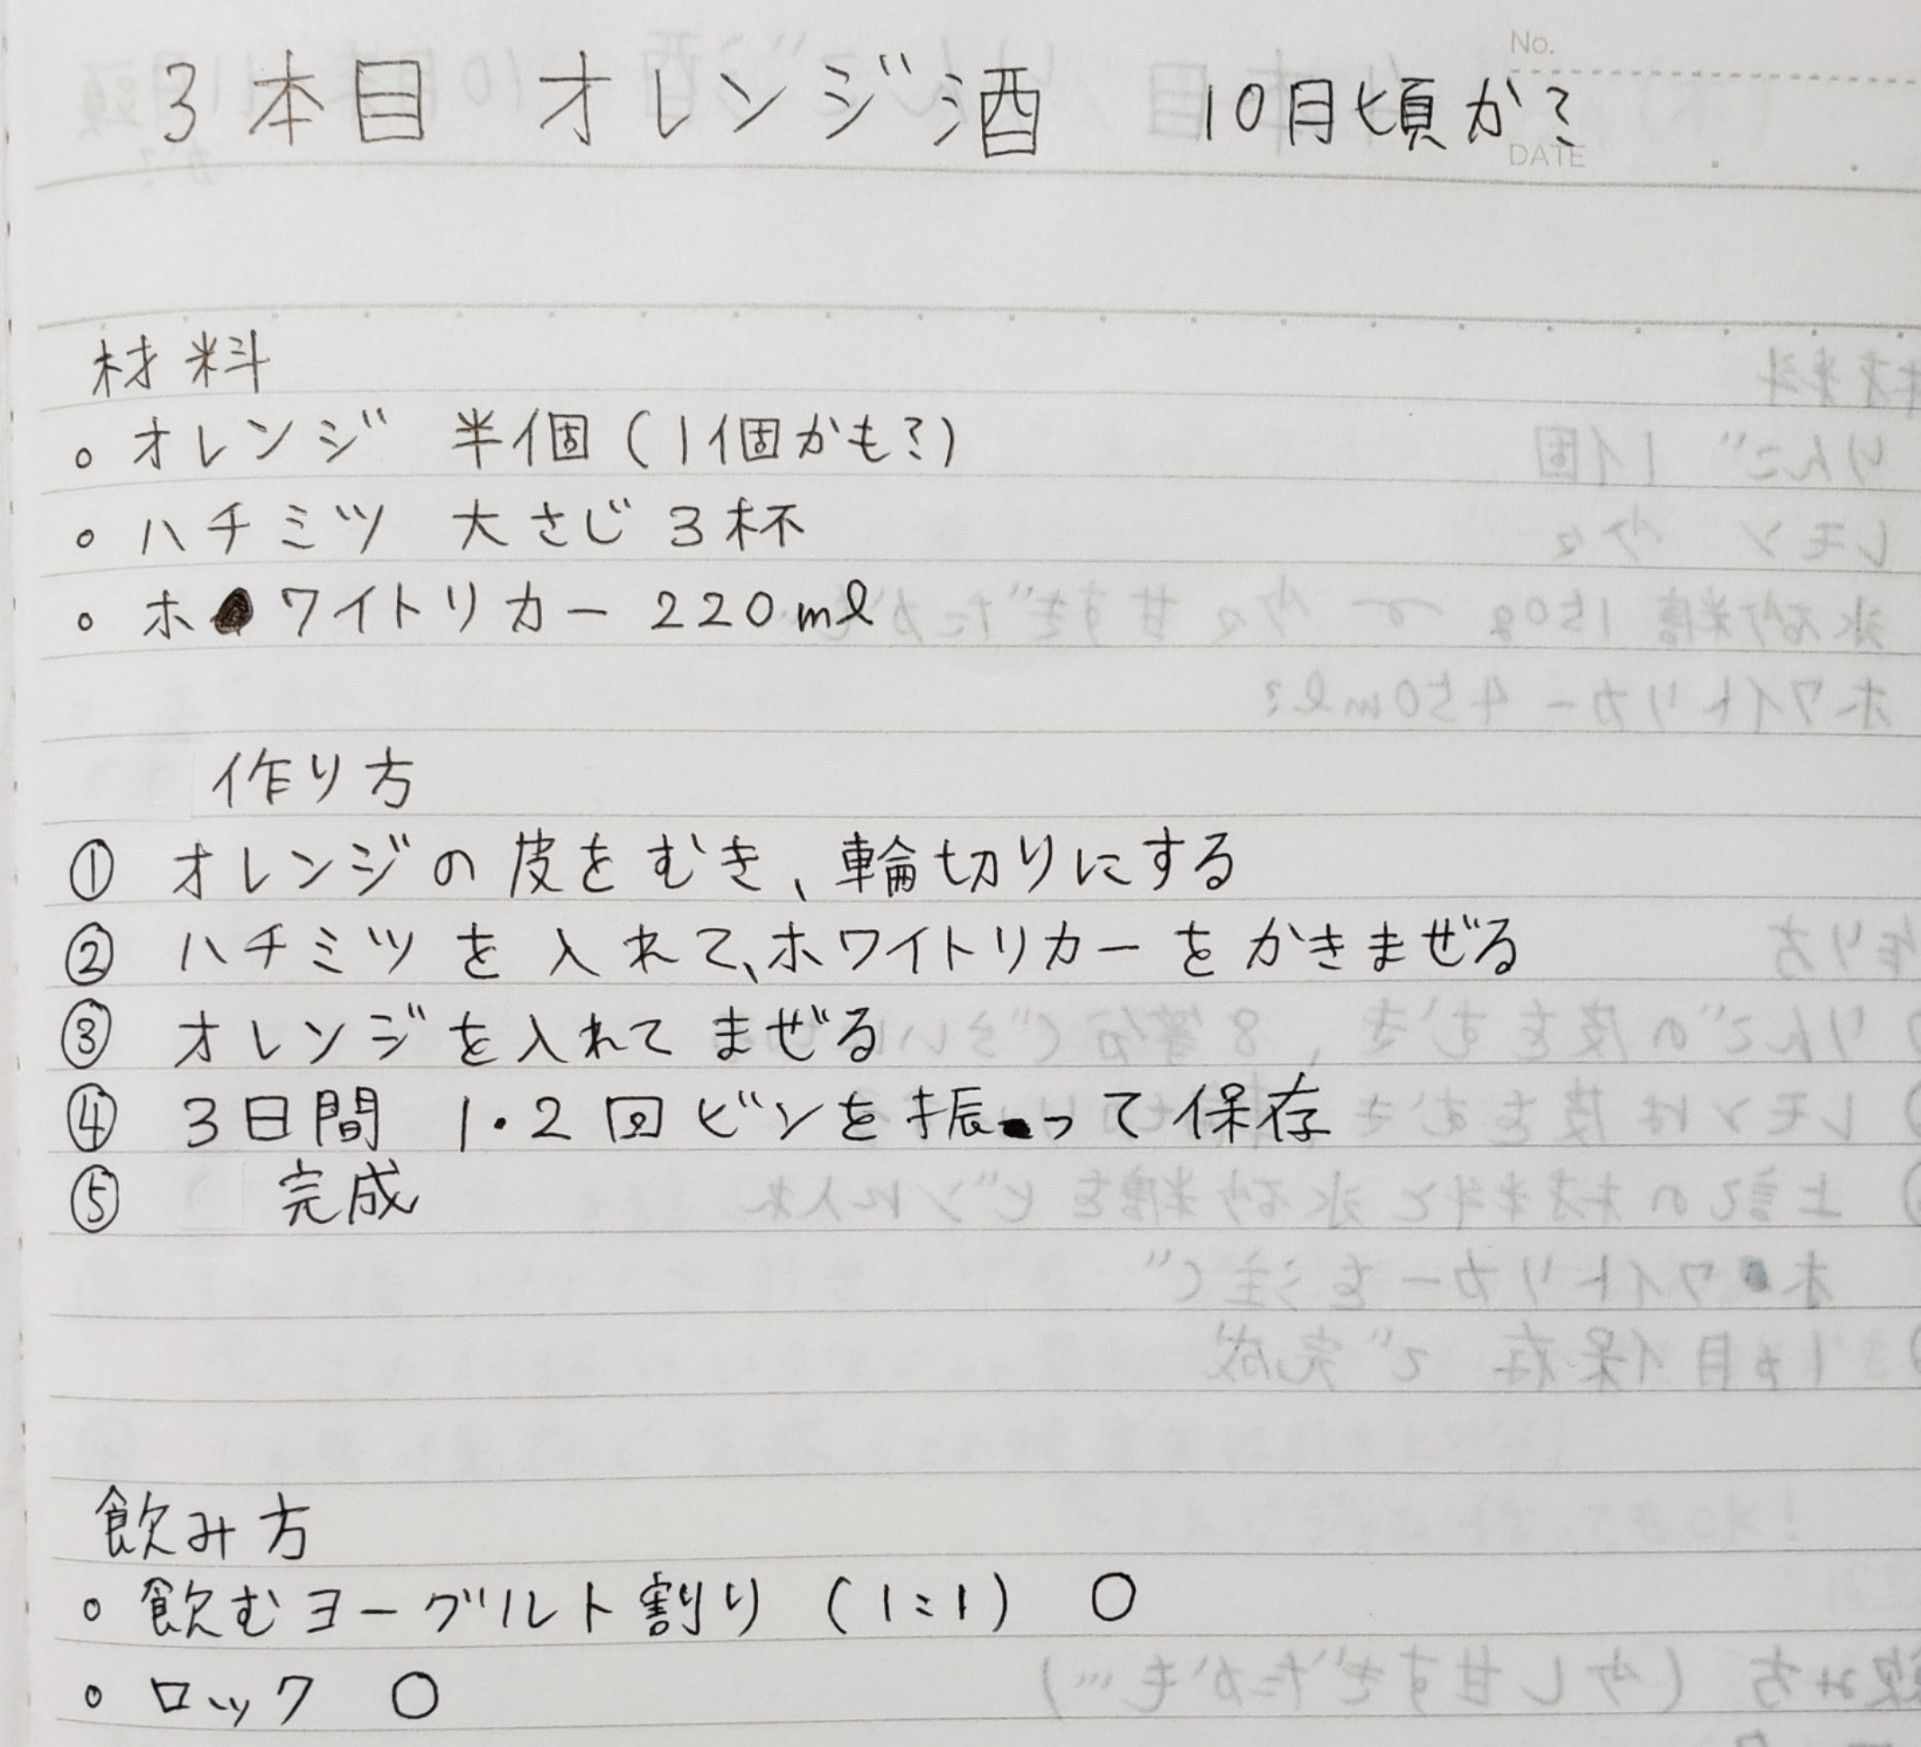 No.
3本目 オレンジ酒 10月頃か?
DATE
材料
。オレンジ 半個(1個かも?)
。ハチミツ 大さじ3杯
。ホワイトリカー 220ml
作り方
① オレンジの皮をむき、輪切りにする
② ハチミツを入れて、ホワイトリカーをかきまぜる
③ オレンジを入れてまぜる
④ 3日間 1・2回ビンを振って保存
⑤ 完成
飲み方
。飲むヨーグルト割り (1:1) ○
。ロック ○